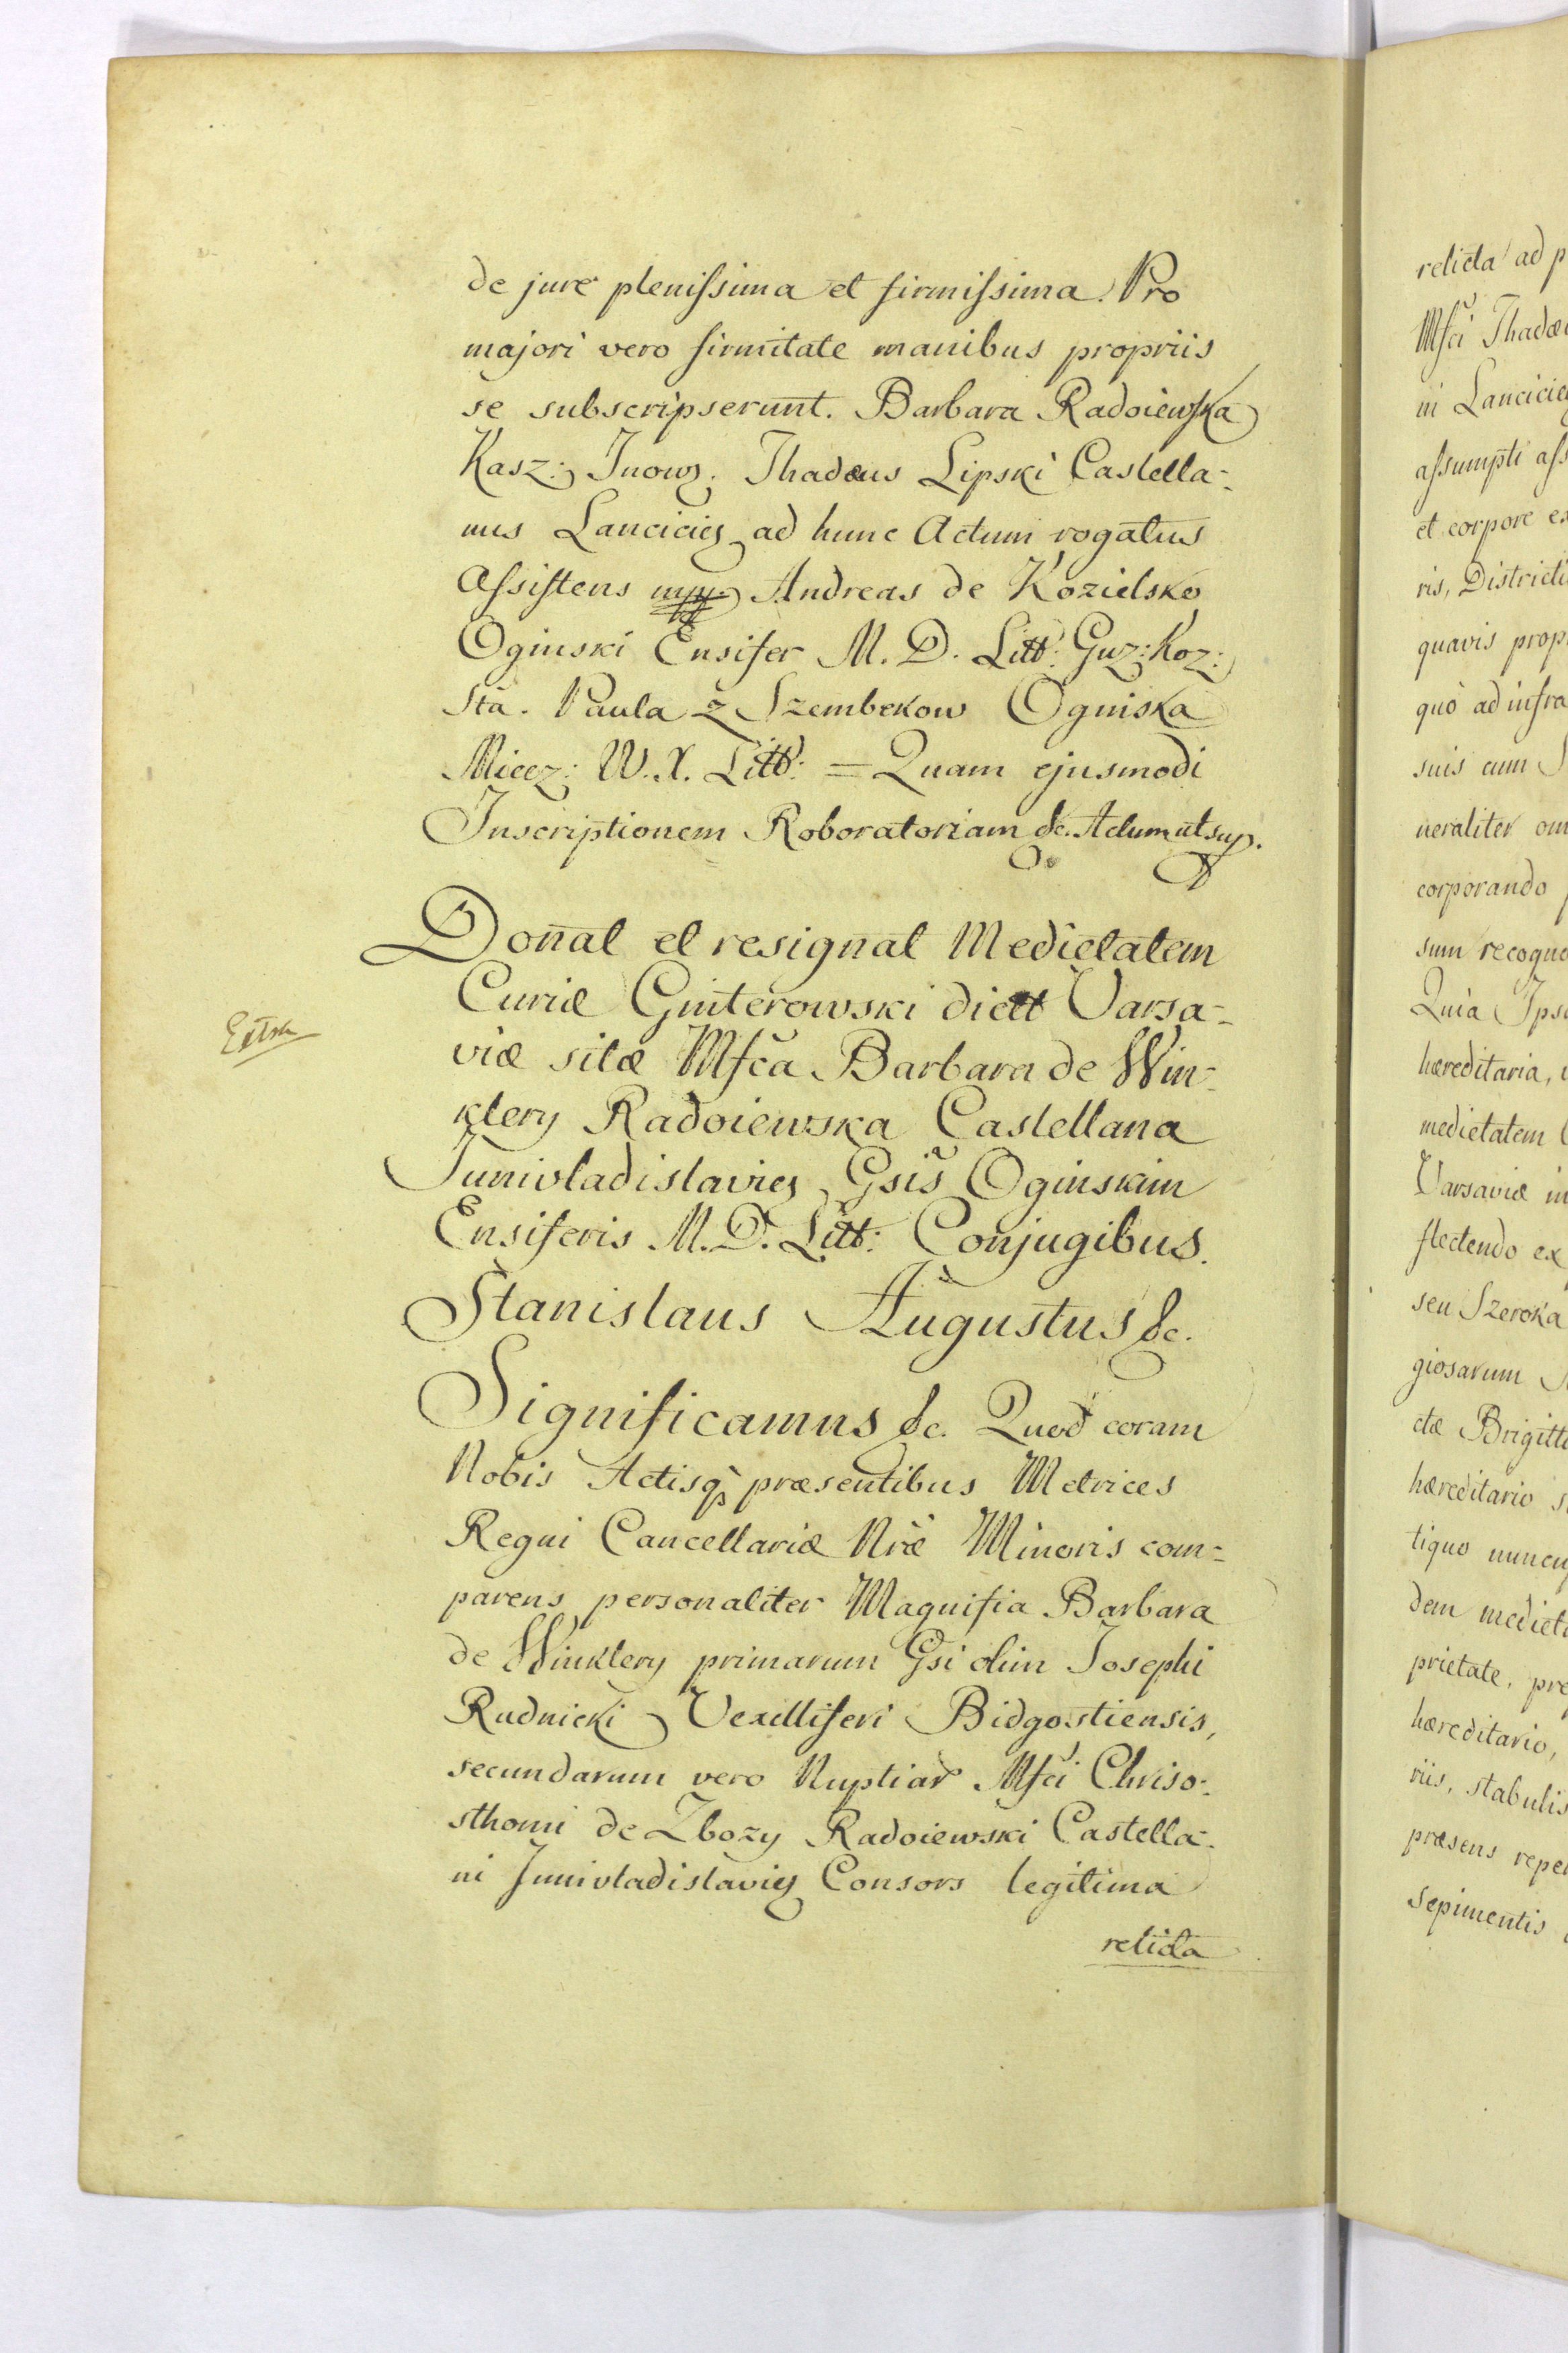 de jure plenissima et firmissima. Pro
majori vero firmitate manibus propriis
se subscripserunt. Barbara Radoiewska
Kasz: Inow: Thadæus Lipski Castella-
nus Lanciciēs ad hunc Actum rogatus
Assistens mpp. Andreas de Kozielsko
Oginski Ensifer M. D. Litt: Guz: Koz:
Sta. Paula z Szembekow Oginska
Miecz: W. X. Litt: = Quam ejusmodi
Inscriptionem Roboratoriam &c. Actum ut sup.
Doñat et resignat Medietatem
Curiæ Ginterowski dictt Varsa-
viæ sitæ Mfca Barbara de Win-
klery Radoiewska Castellana
Junivladislavies Gsis Oginskim
Ensiferis M. D. Litt: Conjugibus.
Stanislaus Augustus &c.
Significamus &c. Quod coram
Nobis Actisq præsentibus Metrices
Regni Cancellariæ Nræ Minoris com-
parens personaliter Magnifia Barbara
de Winklery primarum Gsi olim Josephi
Rudnicki Vexilliferi Bidgostiensis,
secundarum vero Nuptiar Mfci Chriso-
sthomi de Zbozy Radoiewski Castella-
ni Junivladislavies Consors legitima
relicta
relicta ad p
Mfci Thadæ
ni Lancicie
assumpti ass
et corpore ex
ris, Districti
quavis prop
quò ad infra
suis cum S
neraliter om
corporando
sum recogno
Quia Ips
hæreditaria,
medietatem
Varsaviæ in
flectendo ex
seu Szeroka
giosarum
ctæ Brigitt
hæreditario s
tiquo nuncu
dem medieta
prietate, pre
hæreditario,
riis, stabulis
præsens repe
Sepimentis